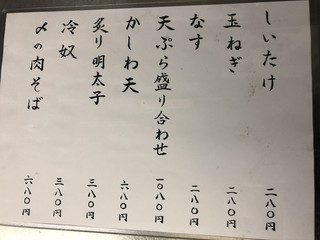 しいたけ 二八〇円
玉ねぎ 二八〇円
なす 二八〇円
天ぷら盛り合わせ 一〇八〇円
かしわ天 六八〇円
炙り明太子 三八〇円
冷奴 三八〇円
〆の肉そば 六八〇円